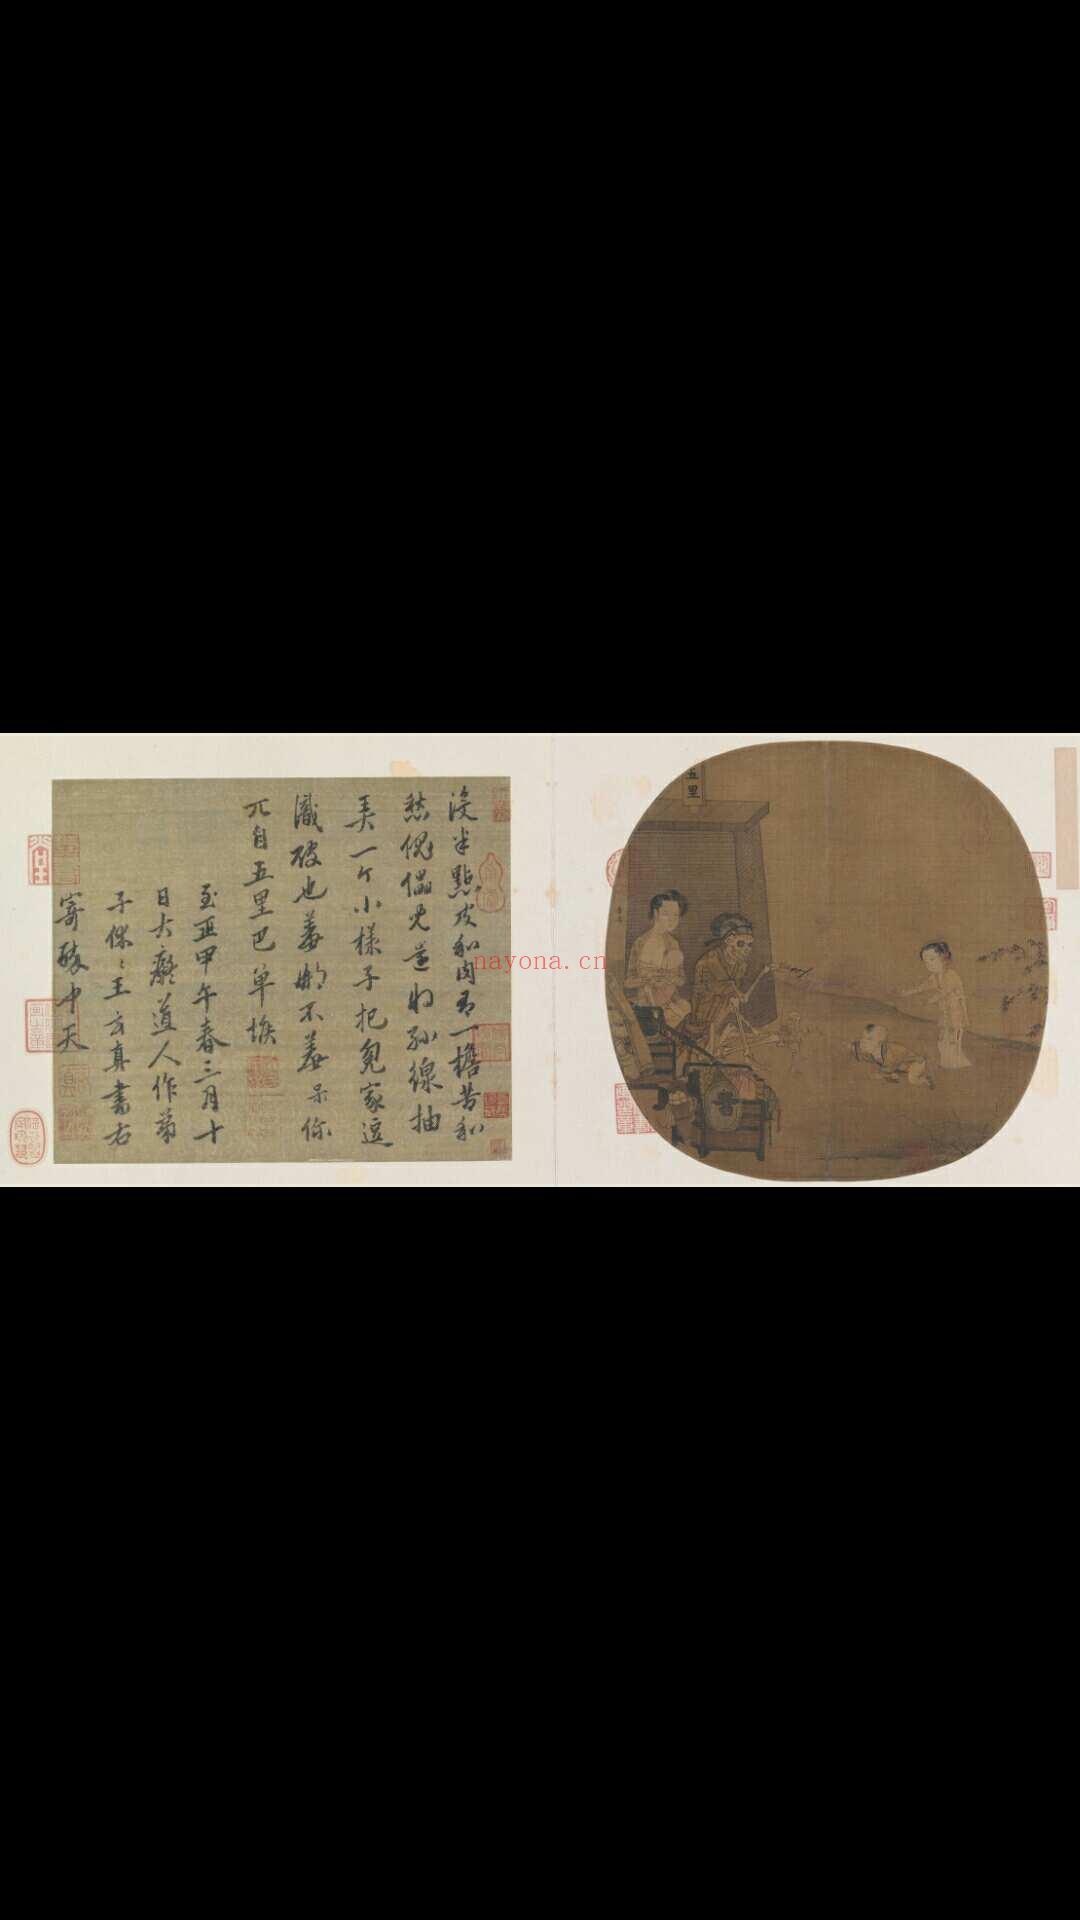 没半點皮和肉有一擔苦和
愁傀儡兒還將絲線抽
弄一个小樣子把冤家逗
識破也羞那不羞呆你
兀自五里巴单堠
至正甲午春三月十
日大癡道人作弟
子休々王玄真書右
寄醉中天
五里
nayona.cn